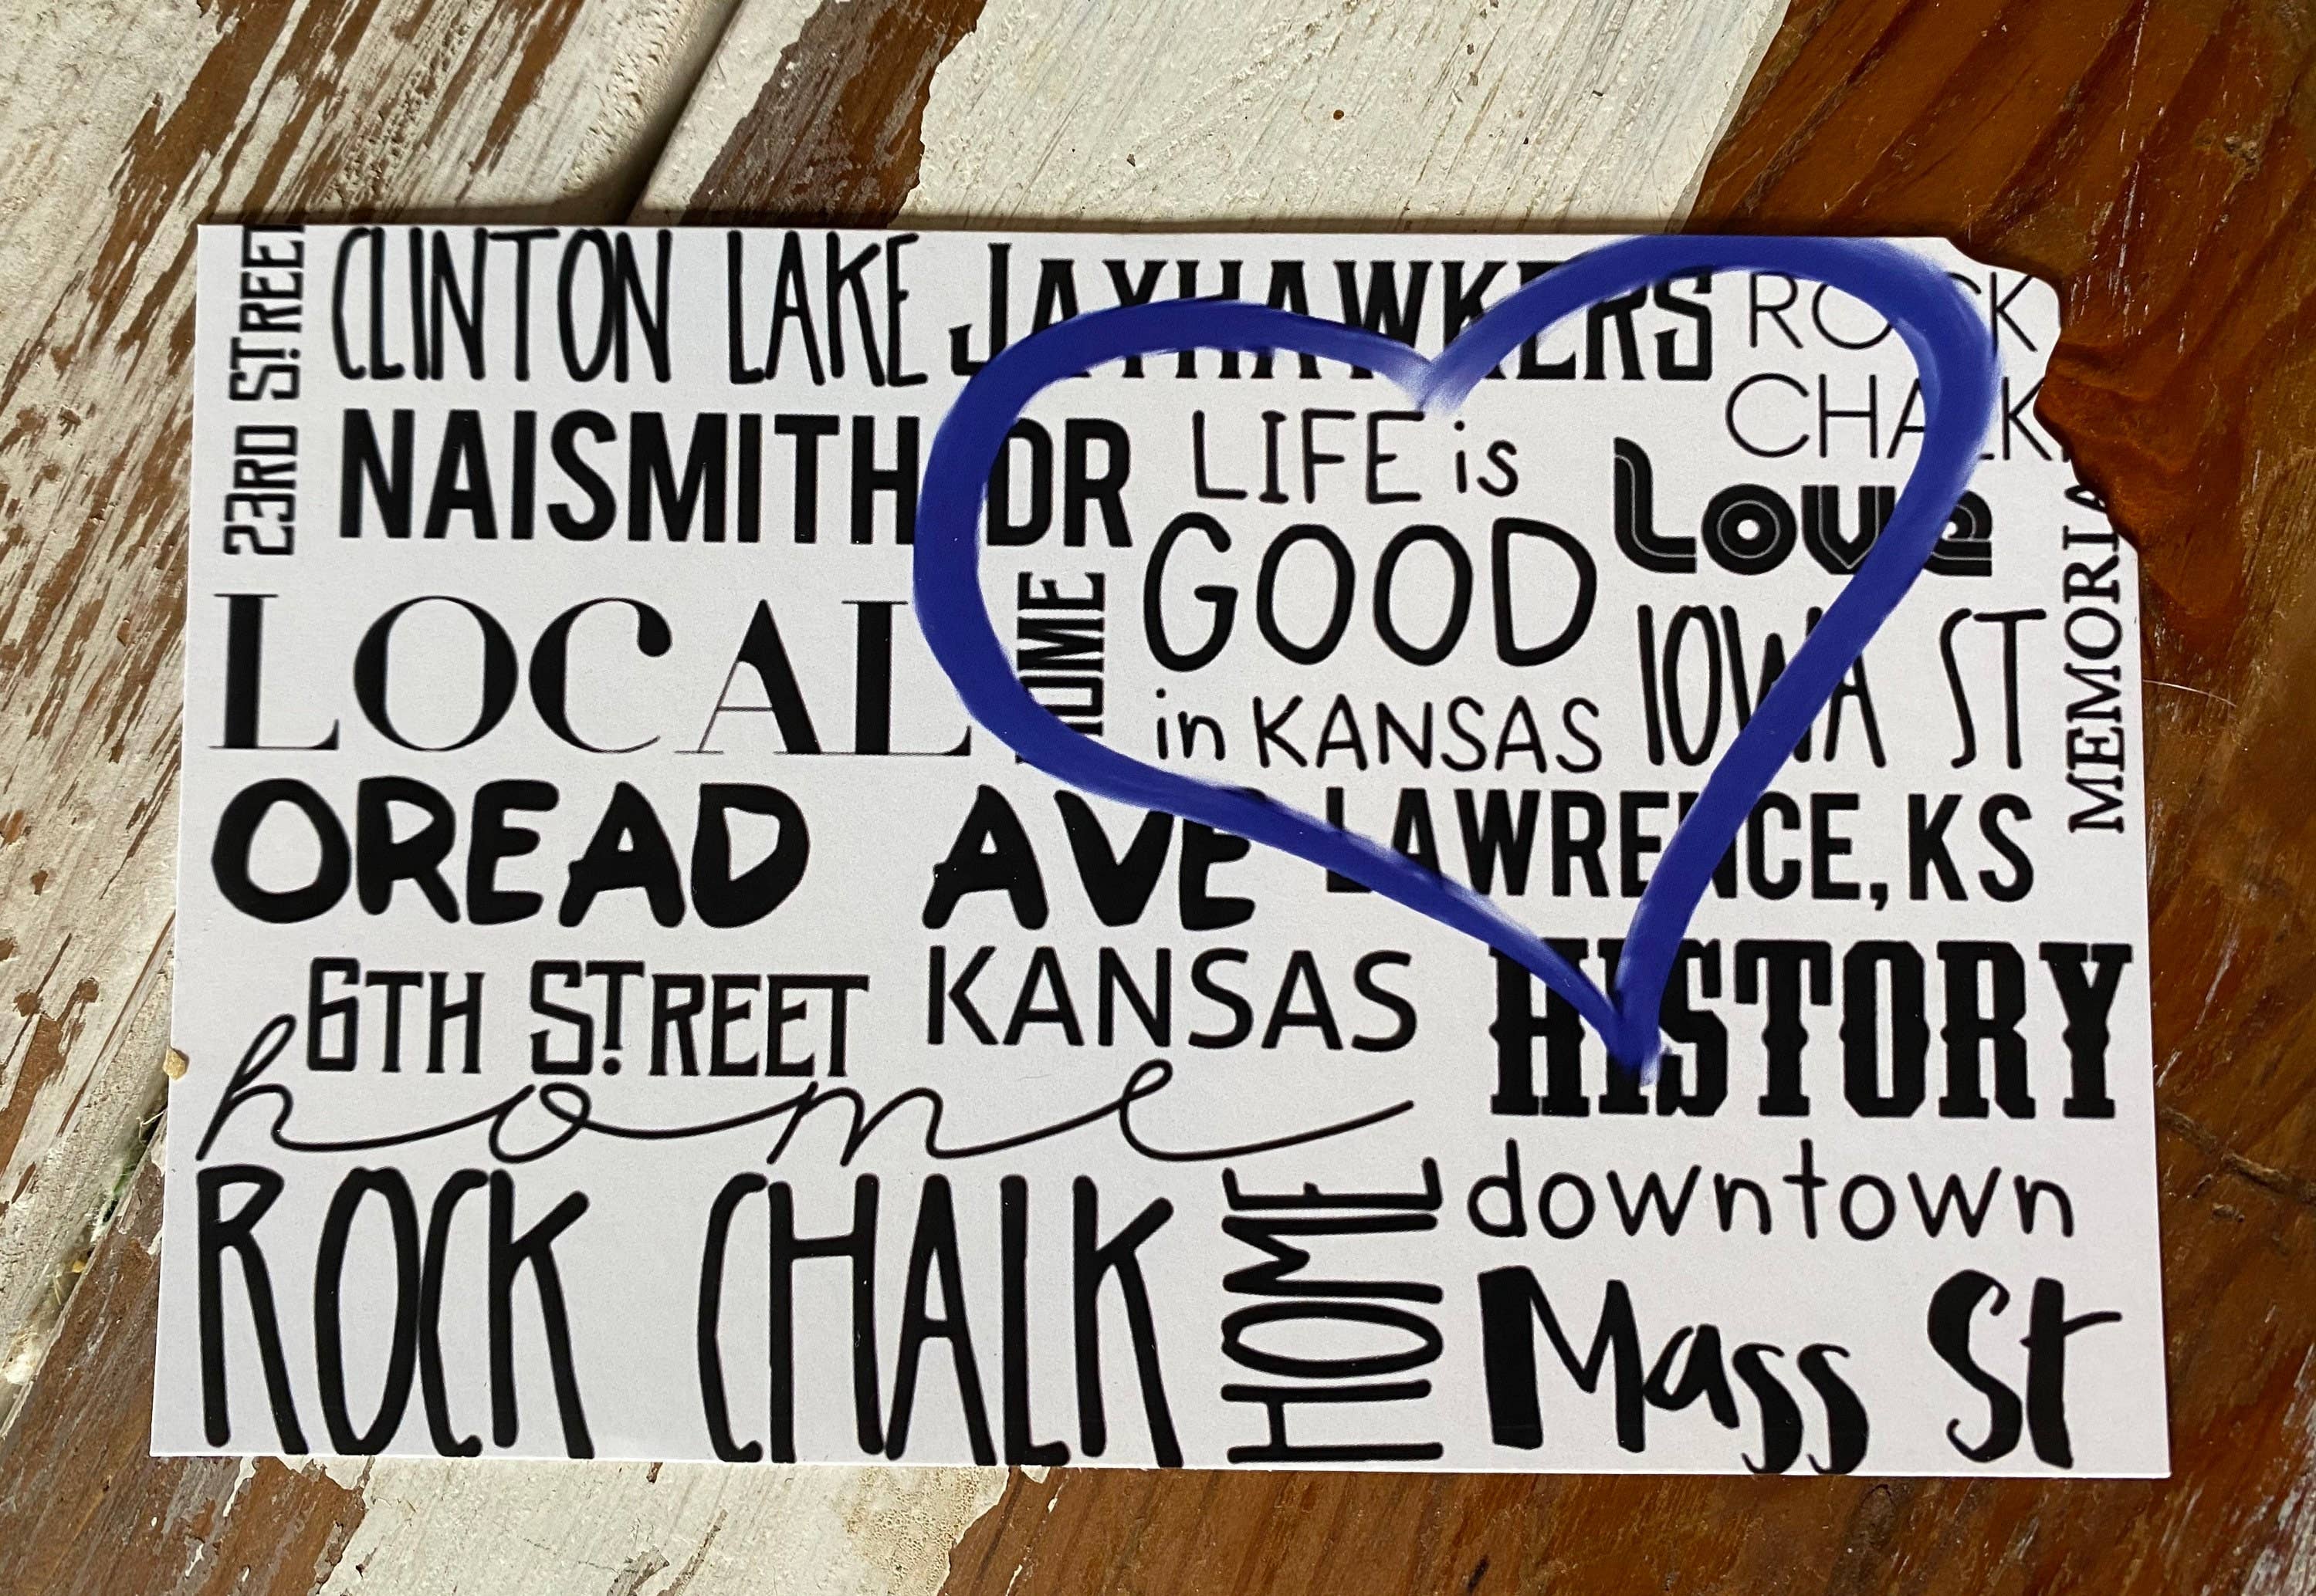 23RD STREET
CLINTON LAKE
JAYHAWKERS
ROCK
CHALK
NAISMITH DR
LIFE is
GOOD
in KANSAS
Love
HOME
LOCAL
IOWA ST
MEMORIA
OREAD AVE
LAWRENCE, KS
6TH STREET
KANSAS
HISTORY
home
ROCK CHALK
HOME
downtown
Mass St